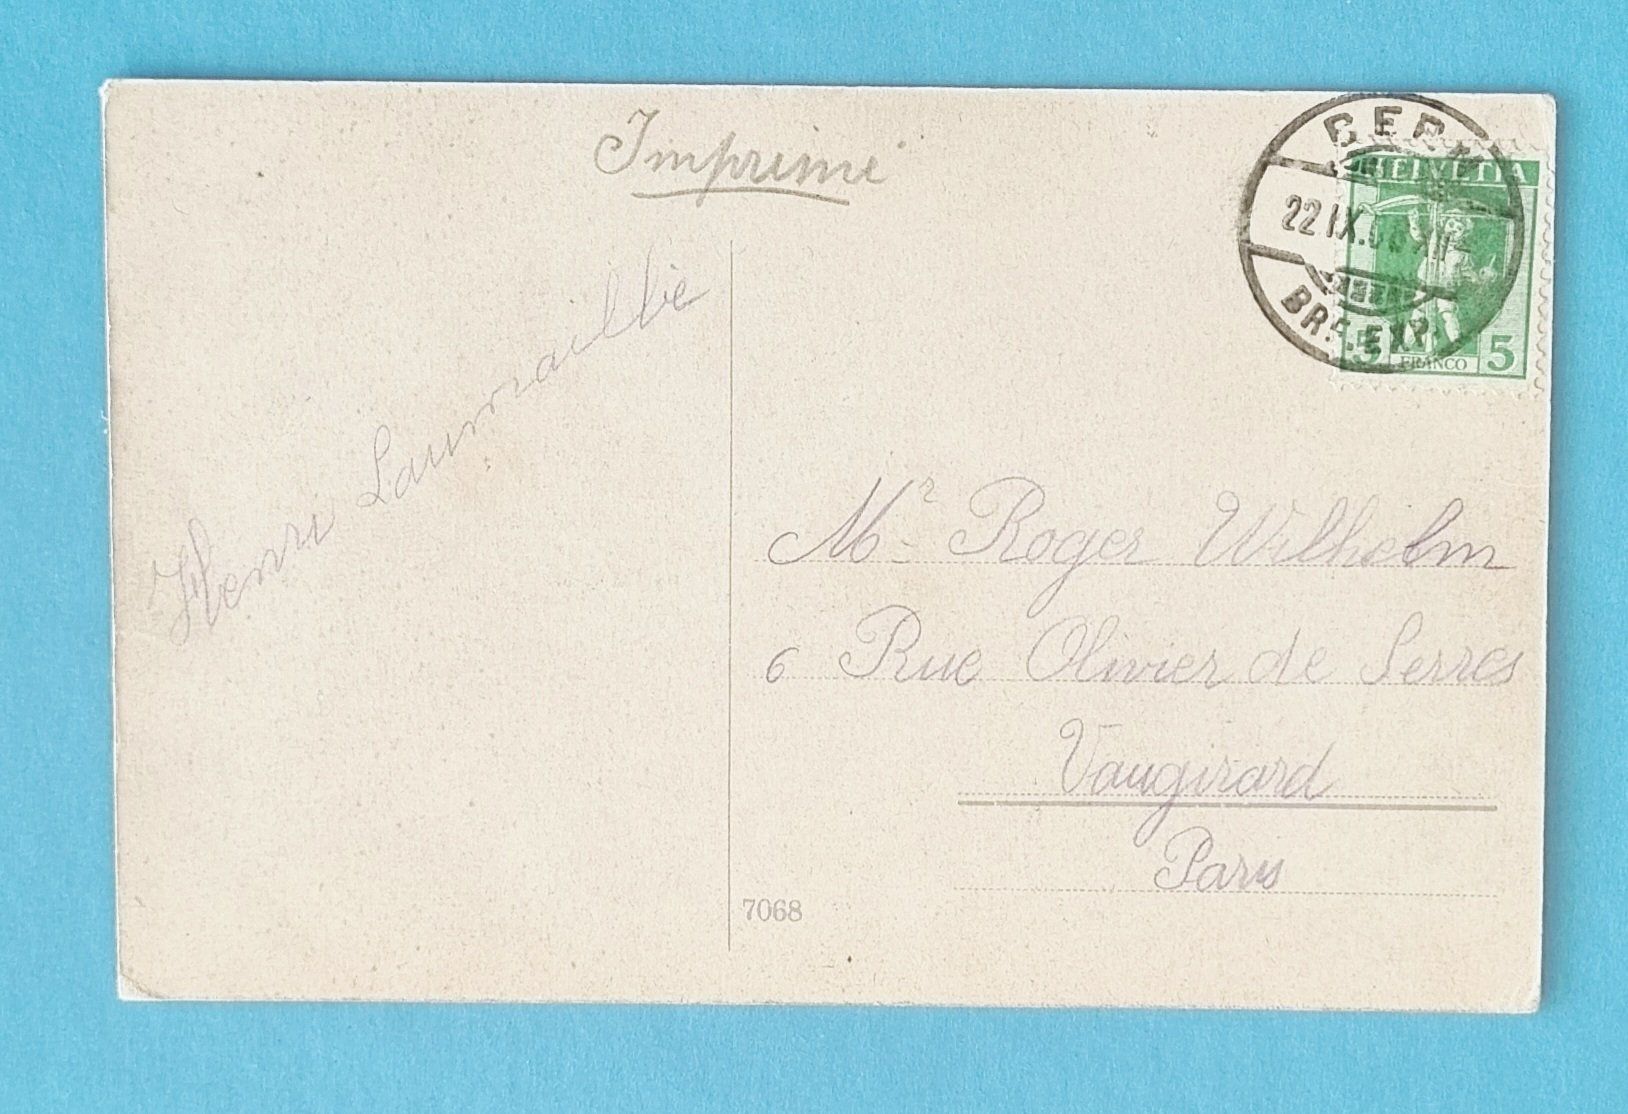 Imprimé
BERN
22 IX.
BRF.EXP.
HELVETIA
5 FRANCO 5
Henri
Mr Roger Wilhelm
6 Rue Olivier de Serres
Vaugirard
Paris
7068